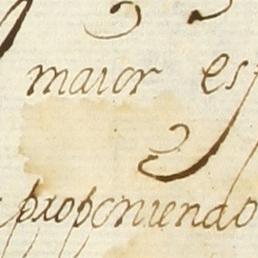 maior es
proponiendo